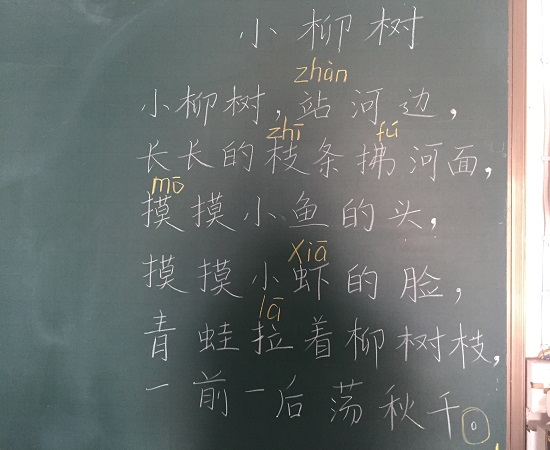 小柳树
zhàn
小柳树,站河边,
zhī fú
长长的枝条拂河面,
mō
摸摸小鱼的头,
xiā
摸摸小虾的脸,
lā
青蛙拉着柳树枝,
一前一后荡秋千。